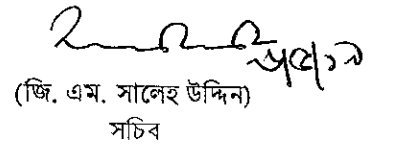 (জি. এম. সালেহ উদ্দিন)
সচিব